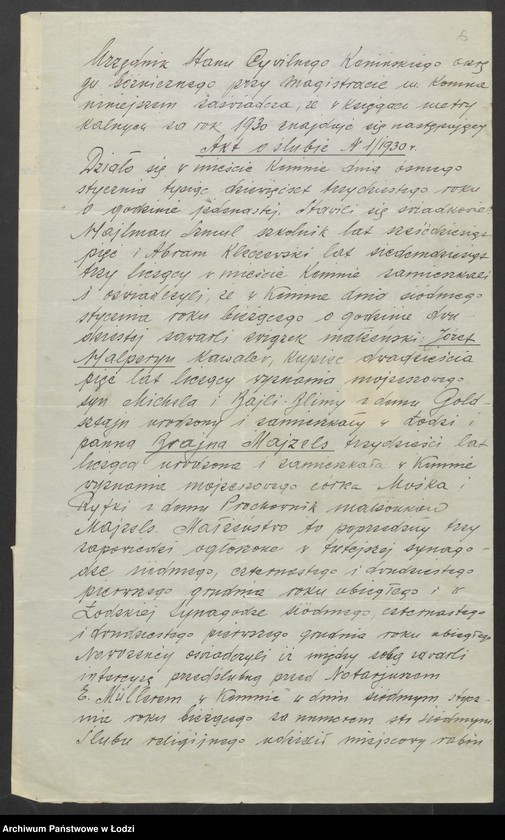 5
Urzędnik Stanu Cywilnego Konińskiego okrę
gu bóżniczego przy Magistracie m. Konina
niniejszem zaświadcza, że w księgach metry
kalnych za rok 1930 znajduje się następujący
Akt o ślubie N 1/1930 r.
Działo się w mieście Koninie dnia ósmego
stycznia tysiąc dziewięćset trzydziestego roku
o godzinie jedenastej. Stawili się świadkowie:
Majlman Szmul szkolnik lat sześćdziesiąt
pięć i Abram Kleczewski lat siedemdziesiąt
trzy liczący w mieście Koninie zamieszkali
i oświadczyli, że w Koninie dnia siódmego
stycznia roku bieżącego o godzinie dwu-
dziestej zawarli związek małżeński: Józef
Halperyn kawaler, kupiec dwadzieścia
pięć lat liczący wyznania mojżeszowego
syn Michela i Bajli-Blimy z domu Gold-
sztajn urodzony i zamieszkały w Łodzi i
panna Brajna Majzels trzydzieści lat
licząca urodzona i zamieszkała w Koninie
wyznania mojżeszowego córka Mośka i
Ryfki z domu Prochownik małżonków
Majzels. Małżeństwo to poprzedziły trzy
zapowiedzi ogłoszone w tutejszej synago-
dze siódmego, czternastego i dwudziestego
pierwszego grudnia roku ubiegłego i w
Łódzkiej Synagodze siódmego, czternastego
i dwudziestego pierwszego grudnia roku ubiegłego
Nowożeńcy oświadczyli iż między sobą zawarli
intercyzę przedślubną przed Notarjuszem
E. Müllerem w Koninie w dniu siódmym stycz-
nia roku bieżącego za numerem sto siódmym.
Ślubu religijnego udzielił miejscowy rabin
Archiwum Państwowe w Łodzi